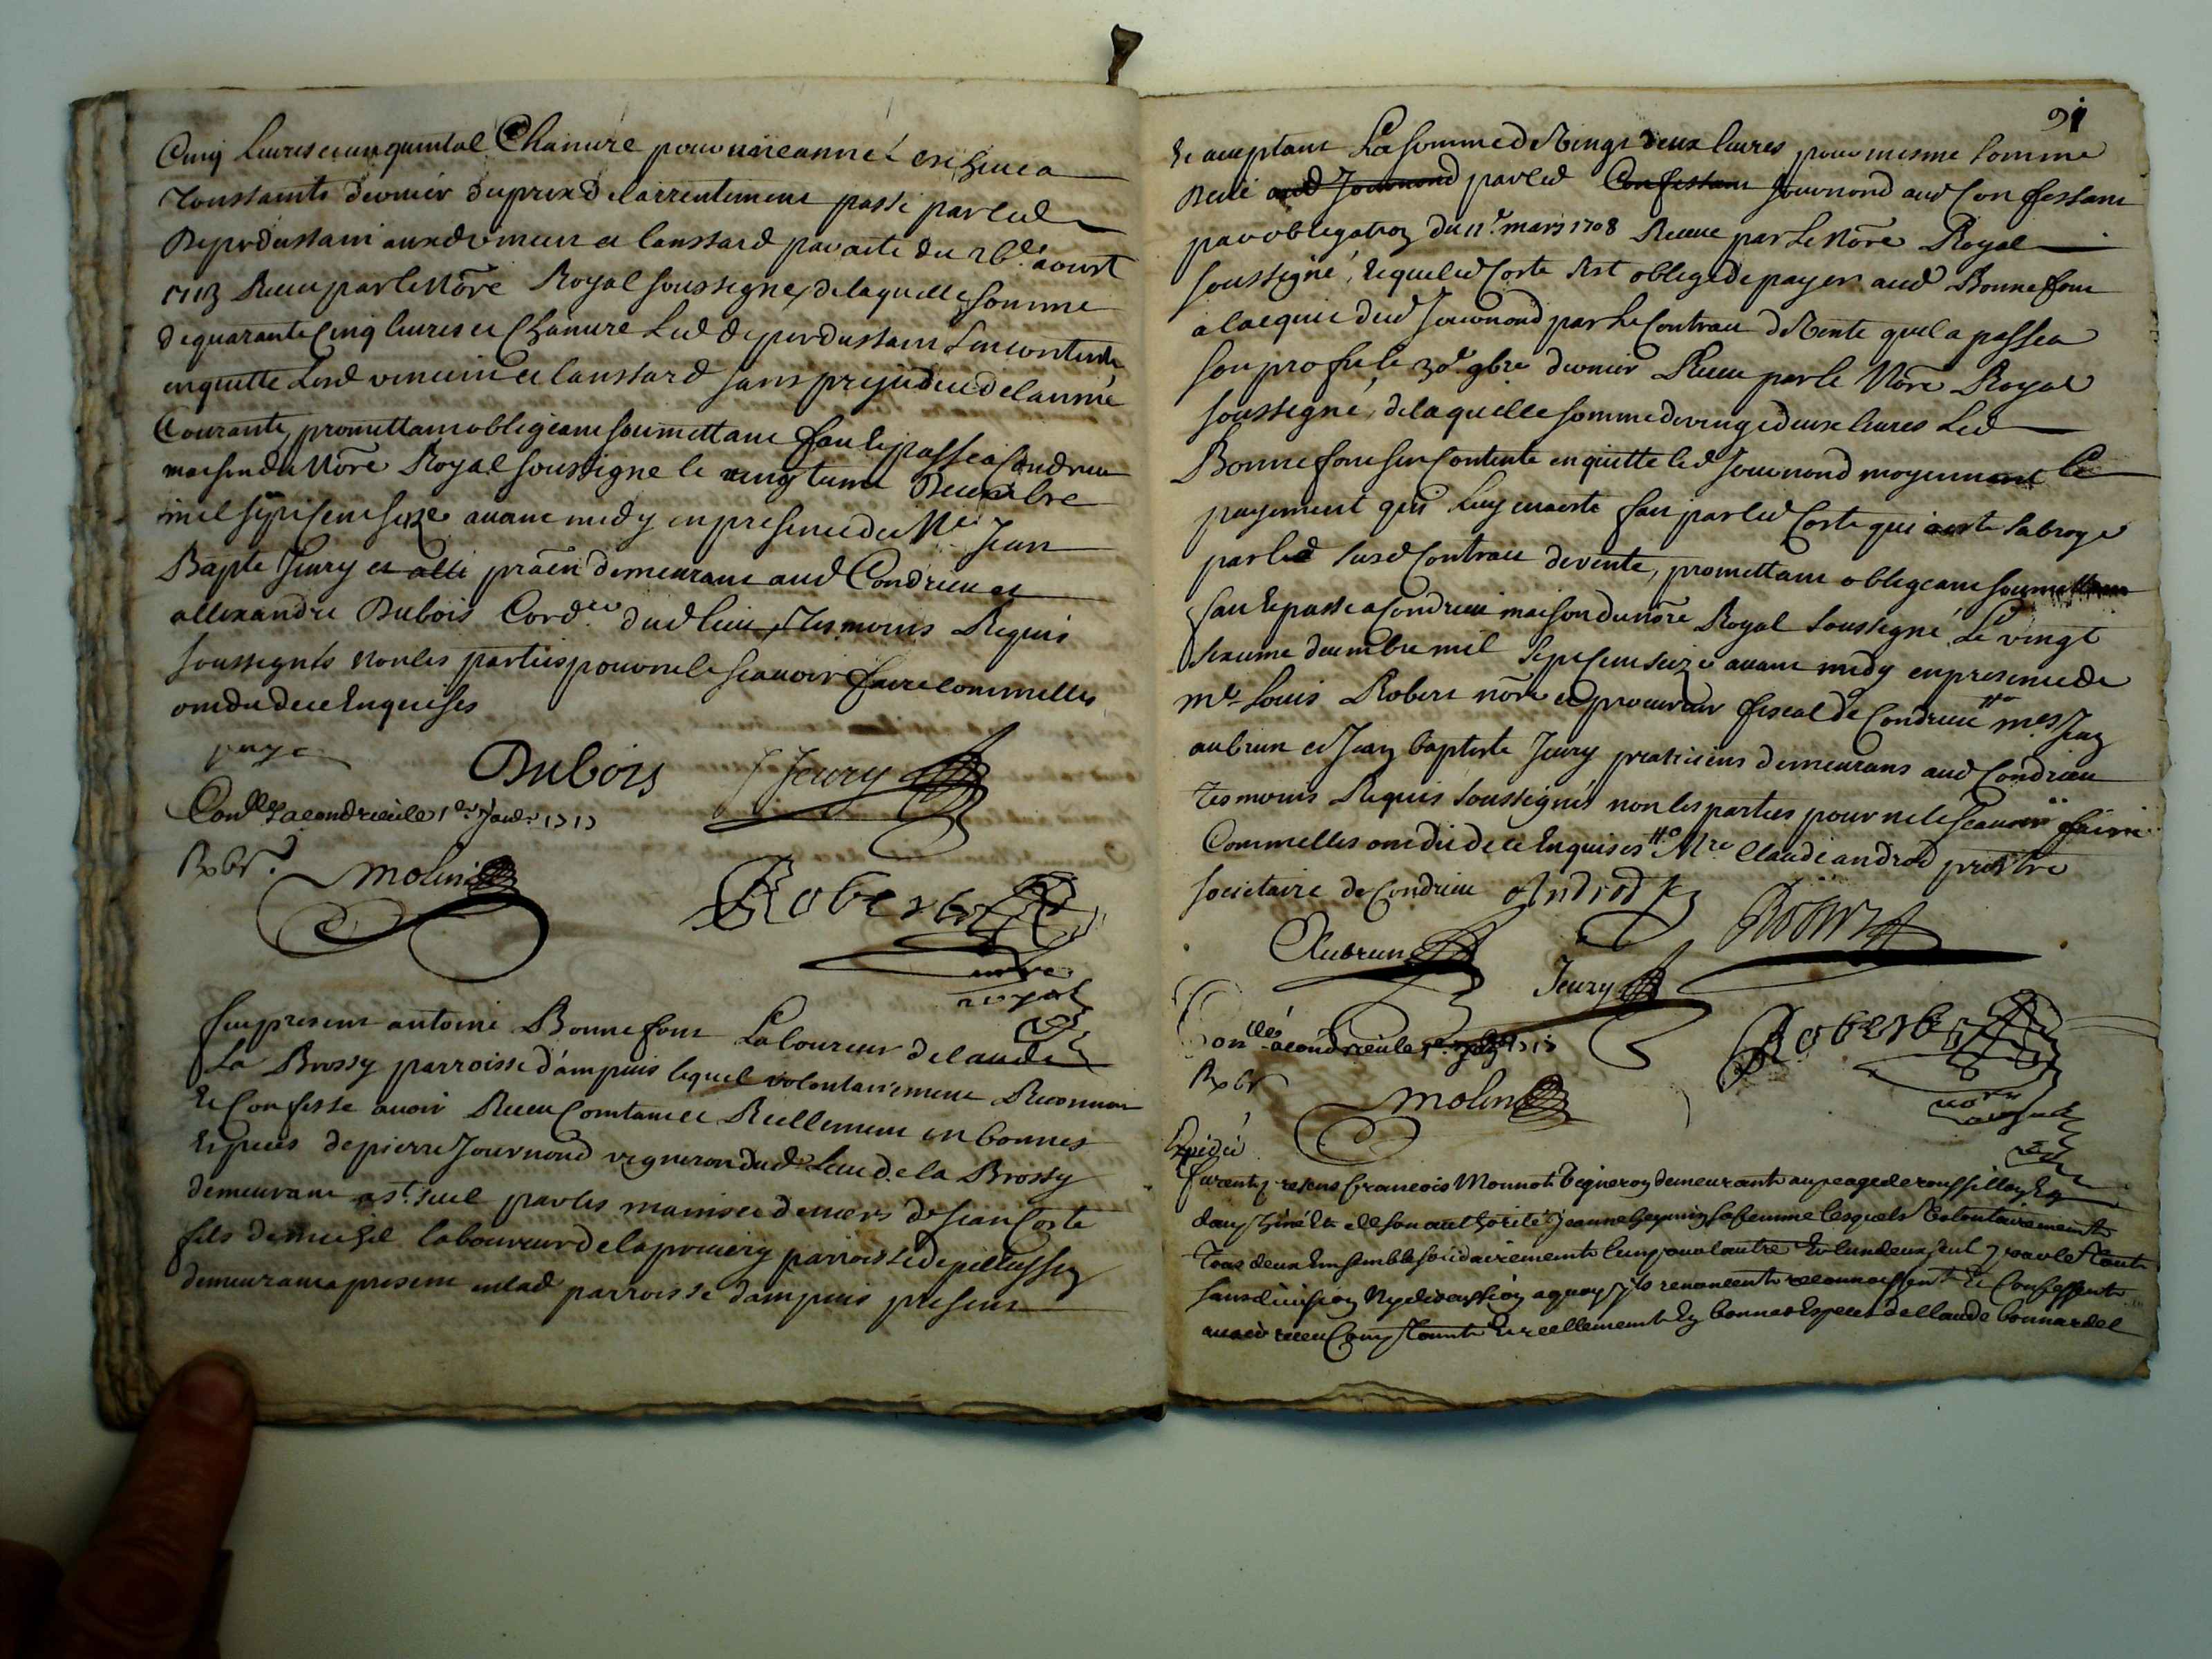 Cinq livres et un quintal Chanvre pour une année escheue a
Toussaints dernier du prix de larrentement passé par led
Deperdussain auxd vincent et laussard par acte du 26e aoust
1713 Receu par le No.re Royal soussigné, de laquelle somme
de quarante Cinq livres et Chanvre Led deperdussain Se contente
en quitte Lesd vincent et laussard sans prejudice de lannée
Courante, promettant obligeant soumettant fait et passé a Condrieu
maison du No.re Royal soussigne le vingt Decembre
mil sept cent seize avant midy en presence de Me Jean
Bapte Jeury praen demeurant aud Condrieu et
allexandre Dubois Cord.er dud lieu, Tesmoins Requis
soussignés non les parties pour ne le scavoir faire comme elles
ont dit de ce Enquises
paye
Dubois Jeury
Con.llé a condrieu le 1er Janv. 1717
R 6s
Molin Robert
no.re
royal
Fut present antoine Bonnefont Laboureur de
La Brossy parroisse d'ampuis lequel volontairement Reconnoit
Et Confesse avoir Receu Comtant et Reellement en bonnes
Especes de pierre Journond vigneron dud Lieu de la Brossy
demeurant a st. cuel par les mains et deniers de Jean Corte
fils de michel laboureur de la parroisse de pellussin
demeurant a present en lad parroisse dampuis present
91
Et acceptant La somme de Vingt deux livres pour mesme somme
Deue aud Journond par led Confessant Journond aud Confessant
par obligation du 11e mars 1708 Receue par Le No.re Royal
soussigné, Lequel led Corte s'est obligé de payer aud Bonnefont
a lacquit dud Journond par Le Contract de Vente quil a passé a
son profit le 30e 9bre dernier Receu par le No.re Royal
soussigné, de laquelle somme de vingt deux livres Led
Bonnefont se Contente en quitte led Journond moyennant le
payement qui luy en a esté fait par led Corte qui
par led susd Contract de vente, promettant obligeant soumettant
fait et passé a Condrieu maison du no.re Royal soussigné Le vingt
sixieme decembre mil sept cent seize avant midy en presence de
me Louis Robert no.re et procureur fiscal de Condrieu mes Jean
aubrun et Jean baptiste Jeury praticiens demeurans aud Condrieu
Tesmoins Requis soussignés non les parties pour ne le scavoir faire
Comme elles ont dit de ce Enquises Mre Claude androd prestre
societaire de Condrieu Androd
Aubrun Jeury Robert
Con.llé a condrieu le 1717
R 6s
Molin Robert
no.re
royal
Expedié
Furent presens francois Monnot Vigneron demeurant au peage de roussillon Et
de son authorité Jeanne sa femme lesquels Volontairement
Tous deux Ensemble solidairement lun pour lautre Et lun deux seul pour le tout
sans division Ny discussion a quoy ils renoncent reconnoissent Et Confessent
avoir receu Comptant Et reellement En bonnes Especes de Claude bonnardel